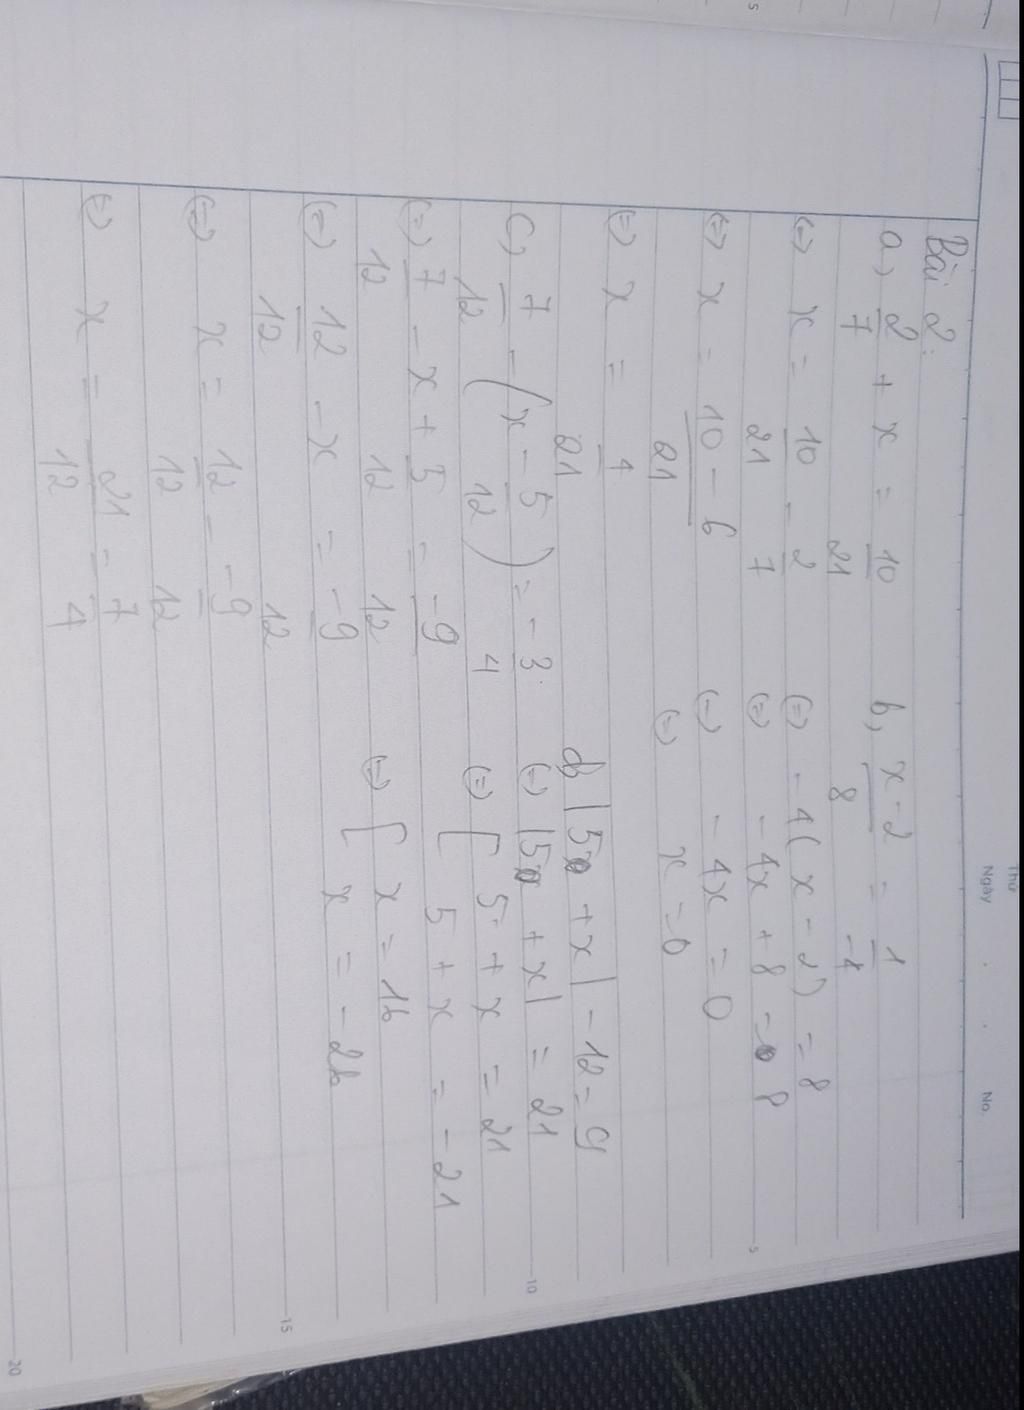 Thứ
Ngày . . No.
Bài 2:
a, 2/7 + x = 10/21
(=) x = 10/21 - 2/7
(=) x = (10 - 6)/21
(=) x = 4/21
b, (x-2)/8 = 1/-4
(=) -4(x-2) = 8
(=) -4x + 8 = 8
(=) -4x = 0
(=) x = 0
c, 7/12 - (x - 5/12) = -3/4
(=) 7/12 - x + 5/12 = -9/12
(=) 12/12 - x = -9/12
(=) x = 12/12 - -9/12
(=) x = 21/12 = 7/4
d, |5 + x| - 12 = 9
(=) |5 + x| = 21
(=) [ 5 + x = 21
5 + x = -21
(=) [ x = 16
x = -26
5
5
10
15
20